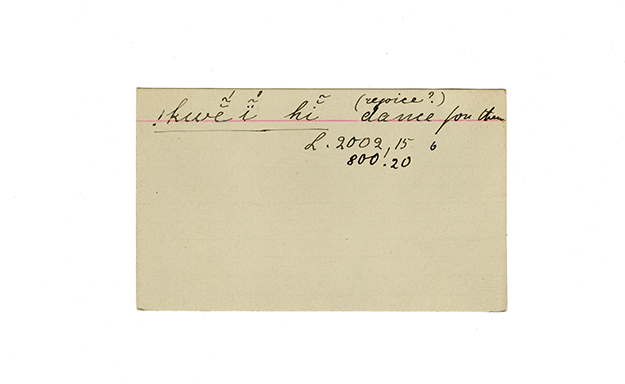 (rejoice?)
!kwẽ́ ĩ́ hĩ dance for them
L. 2002, 15 6
800.20